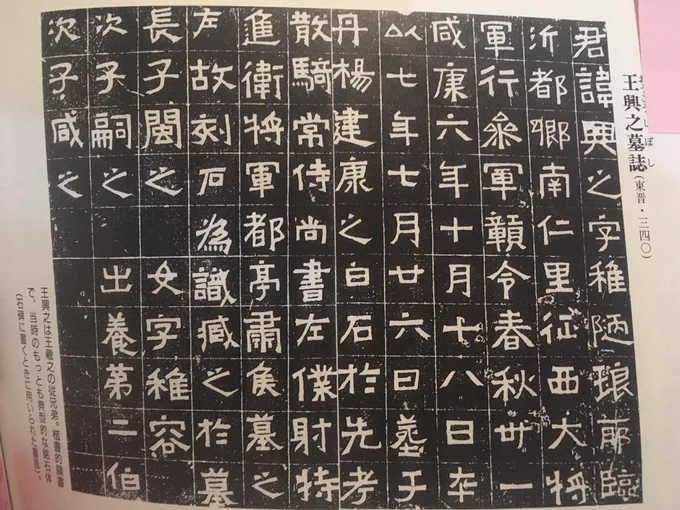 王興之墓誌(東晋・三四〇)
君諱興之字稚陋琅耶臨
沂都鄉南仁里征西大將
軍行參軍贛令春秋卅一
咸康六年十月十八日卒
以七年七月廿六日葬于
丹楊建康之白石於先考
散騎常侍尚書左僕射特
進衛將軍都亭肅侯墓之
左故刻石為識臧之於墓
長子閩之 女字稚容
次子嗣之 出養第二伯
次子咸之
王興之は王羲之の従兄弟。楷書的隷書
で、当時のもっとも典型的な銘石体
(石碑に書くときに用いられた書風)。